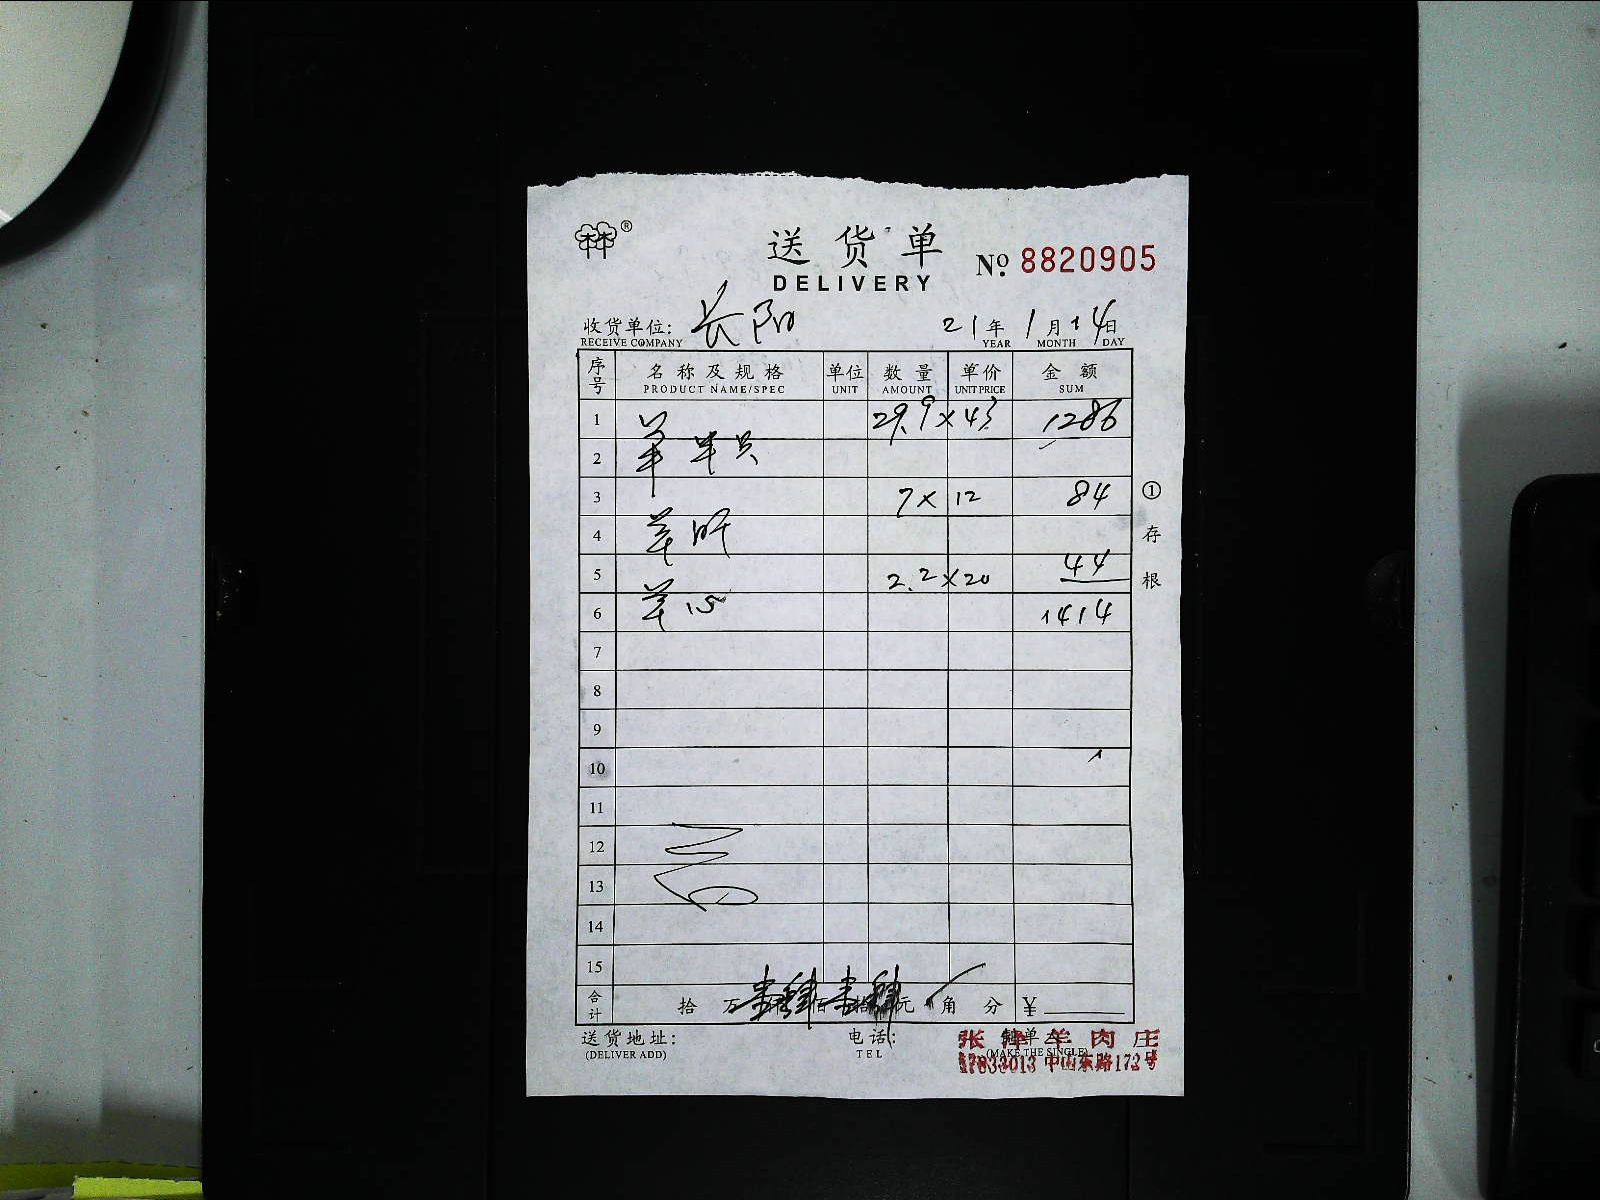 ®
送货单
DELIVERY
No. 8820905
收货单位: 长阳
RECEIVE COMPANY
21年 1月 14日
YEAR MONTH DAY
序号 名称及规格 单位 数量 单价 金额
PRODUCT NAME/SPEC UNIT AMOUNT UNIT PRICE SUM
1 29.9×43 1286
2 羊
3 7×12 84
4 羊肝
5 2.2×20 44
6 羊心 1414
7
8
9
10
11
12
13
14
15
合计 拾 万 壹仟肆佰壹拾肆元 角 分 ¥
①存根
送货地址: 电话: 制单:
(DELIVER ADD) TEL (MAKE THE SINGLE)
张津羊肉庄
中山东路172号